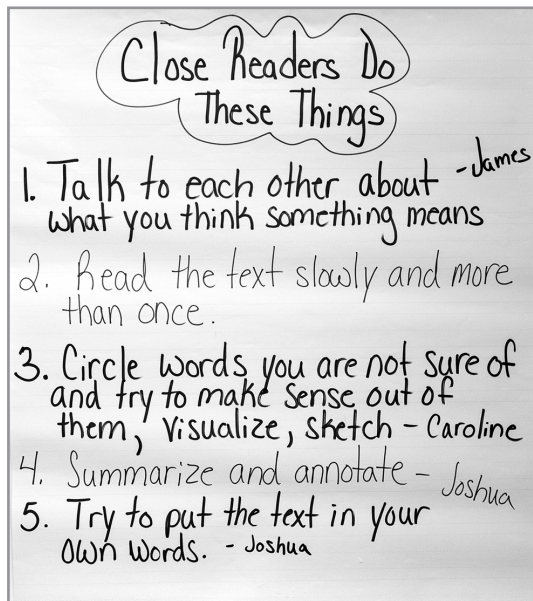 Close Readers Do
These Things
1. Talk to each other about - James
what you think something means
2. Read the text slowly and more
than once.
3. Circle words you are not sure of
and try to make sense out of
them, Visualize, sketch - Caroline
4. Summarize and annotate - Joshua
5. Try to put the text in your
own words. - Joshua